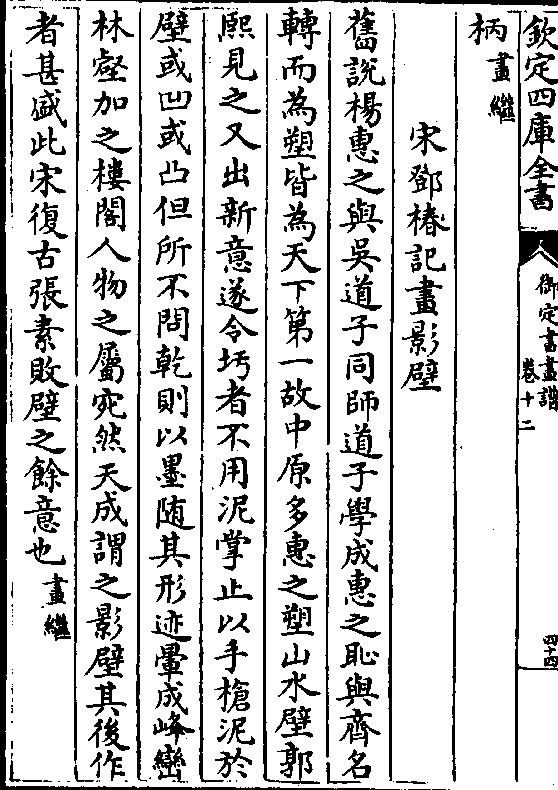 欽定四庫全書
御定書畫譜
卷十二
四十四
柄畫繼
宋鄧椿記畫影壁
舊說楊惠之與吳道子同師道子學成惠之恥與齊名
轉而為塑皆為天下第一故中原多惠之塑山水壁郭
熙見之又出新意遂令圬者不用泥掌止以手槍泥於
壁或凹或凸但所不問乾則以墨隨其形迹暈成峰巒
林壑加之樓閣人物之屬宛然天成謂之影壁其後作
者甚盛此宋復古張素敗壁之餘意也畫繼